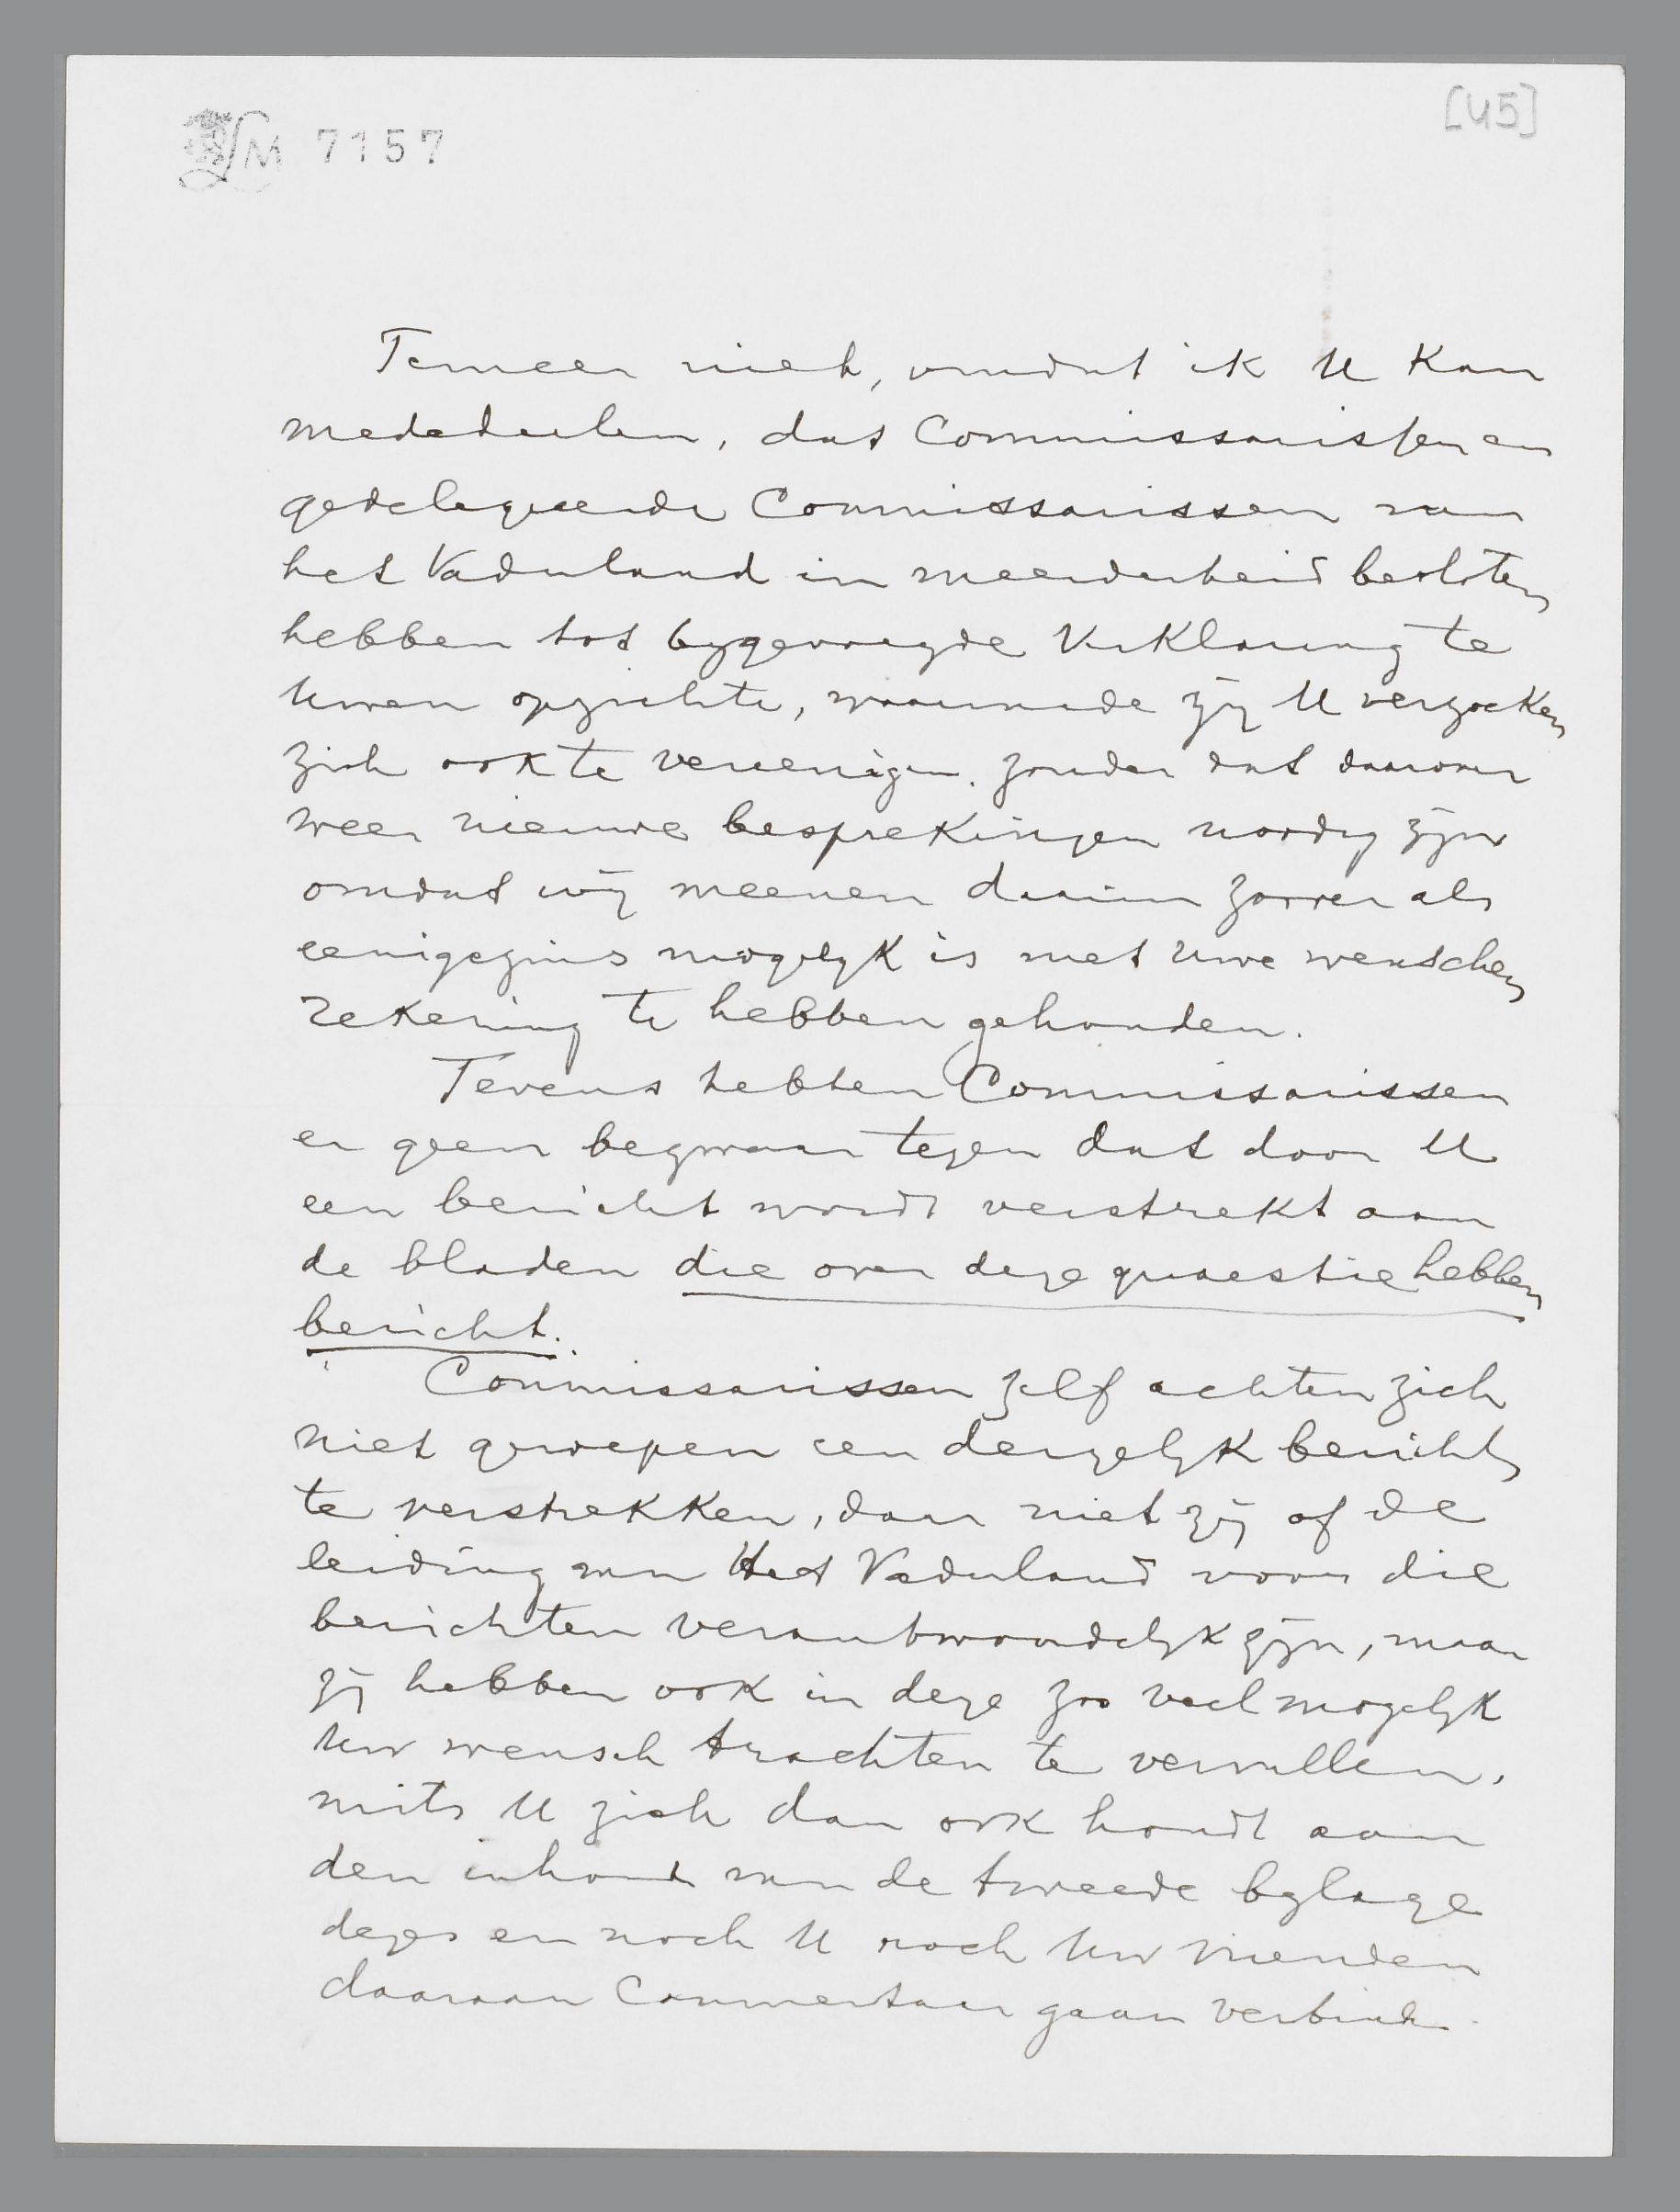 LM 7157
[45]
Temeer niet, omdat ik U kan
mededeelen, dat Commissarissen en
gedelegeerde Commissarissen van
het Vaderland in meerderheid besloten
hebben tot bygevoegde verklaring te
Uwen opzichte, waarmede zij U verzoeken
zich ook te vereenigen. zonder dat daarover
weer nieuwe besprekingen noodig zijn
omdat wij meenen daarin zoover als
eenigszins mogelyk is met Uwe wenschen
rekening te hebben gehouden.
Tevens hebben Commissarissen
er geen bezwaar tegen dat door U
een bericht wordt verstrekt aan
de bladen die over deze quaestie hebben
bericht.
Commissarissen zelf achten zich
niet geroepen een dergelyk bericht
te verstrekken, daar niet zij of de
leiding van Het Vaderland voor die
berichten verantwoordelyk zijn, maar
zij hebben ook in deze zoo veel mogelyk
Uw wensch trachten te vervullen,
mits U zich dan ook houdt aan
den inhoud van de tweede bylage
dezes en noch U noch Uw vrienden
daaraan Commentaar gaan verbinden.